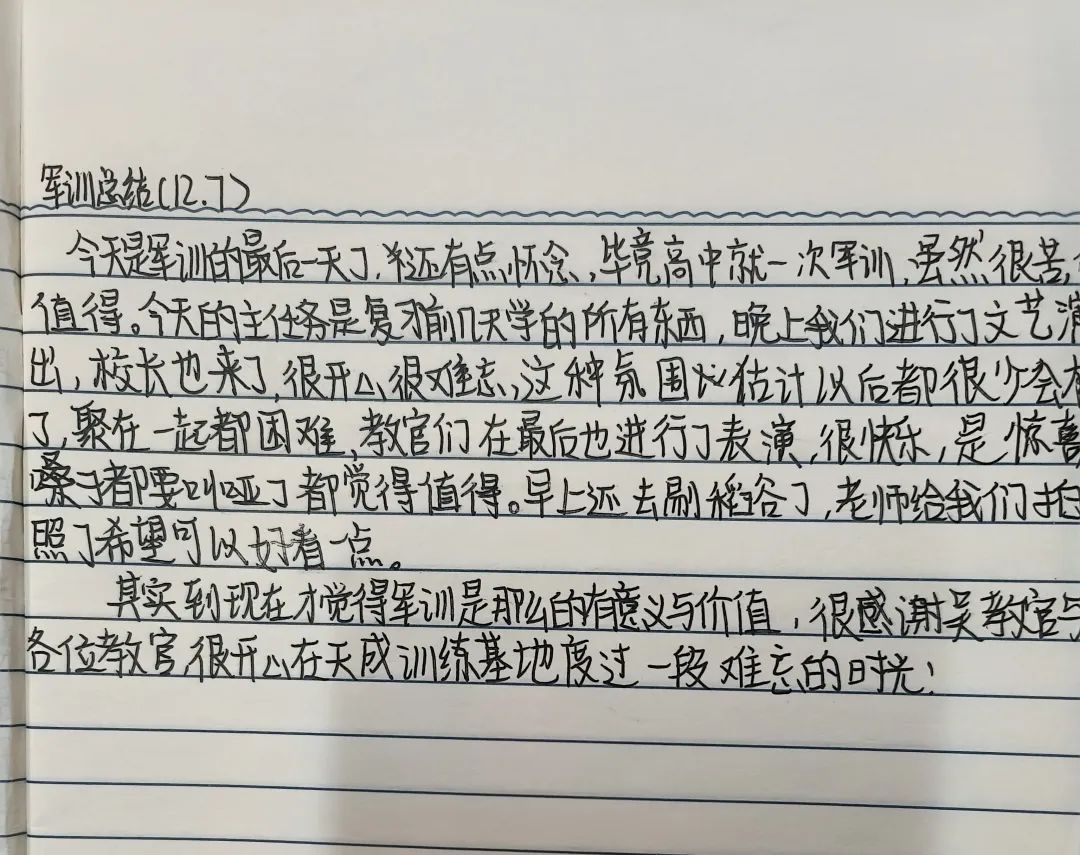 军训总结(12.7)
今天是军训的最后一天了,还有点怀念,毕竟高中就一次军训,虽然很苦,
值得。今天的主任务是复习前几天学的所有东西,晚上我们进行了文艺演
出,校长也来了,很开心,很难忘,这种氛围估计以后都很少会有
了,聚在一起都困难,教官们在最后也进行了表演,很快乐,是惊喜
嗓子都要叫哑了都觉得值得。早上还去割稻谷了,老师给我们拍
照了希望可以好看一点。
其实到现在才觉得军训是那么的有意义与价值,很感谢吴教官与
各位教官,很开心在天成训练基地度过一段难忘的时光!